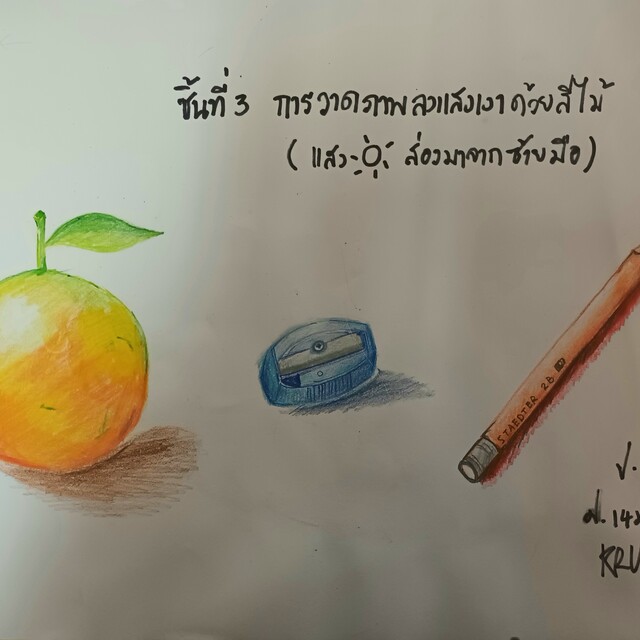 ชิ้นที่ 3 การวาดภาพลงแสงเงาด้วยสีไม้
(แสง ส่องมาจากซ้ายมือ)
STAEDTER 2B
ป.
KRU